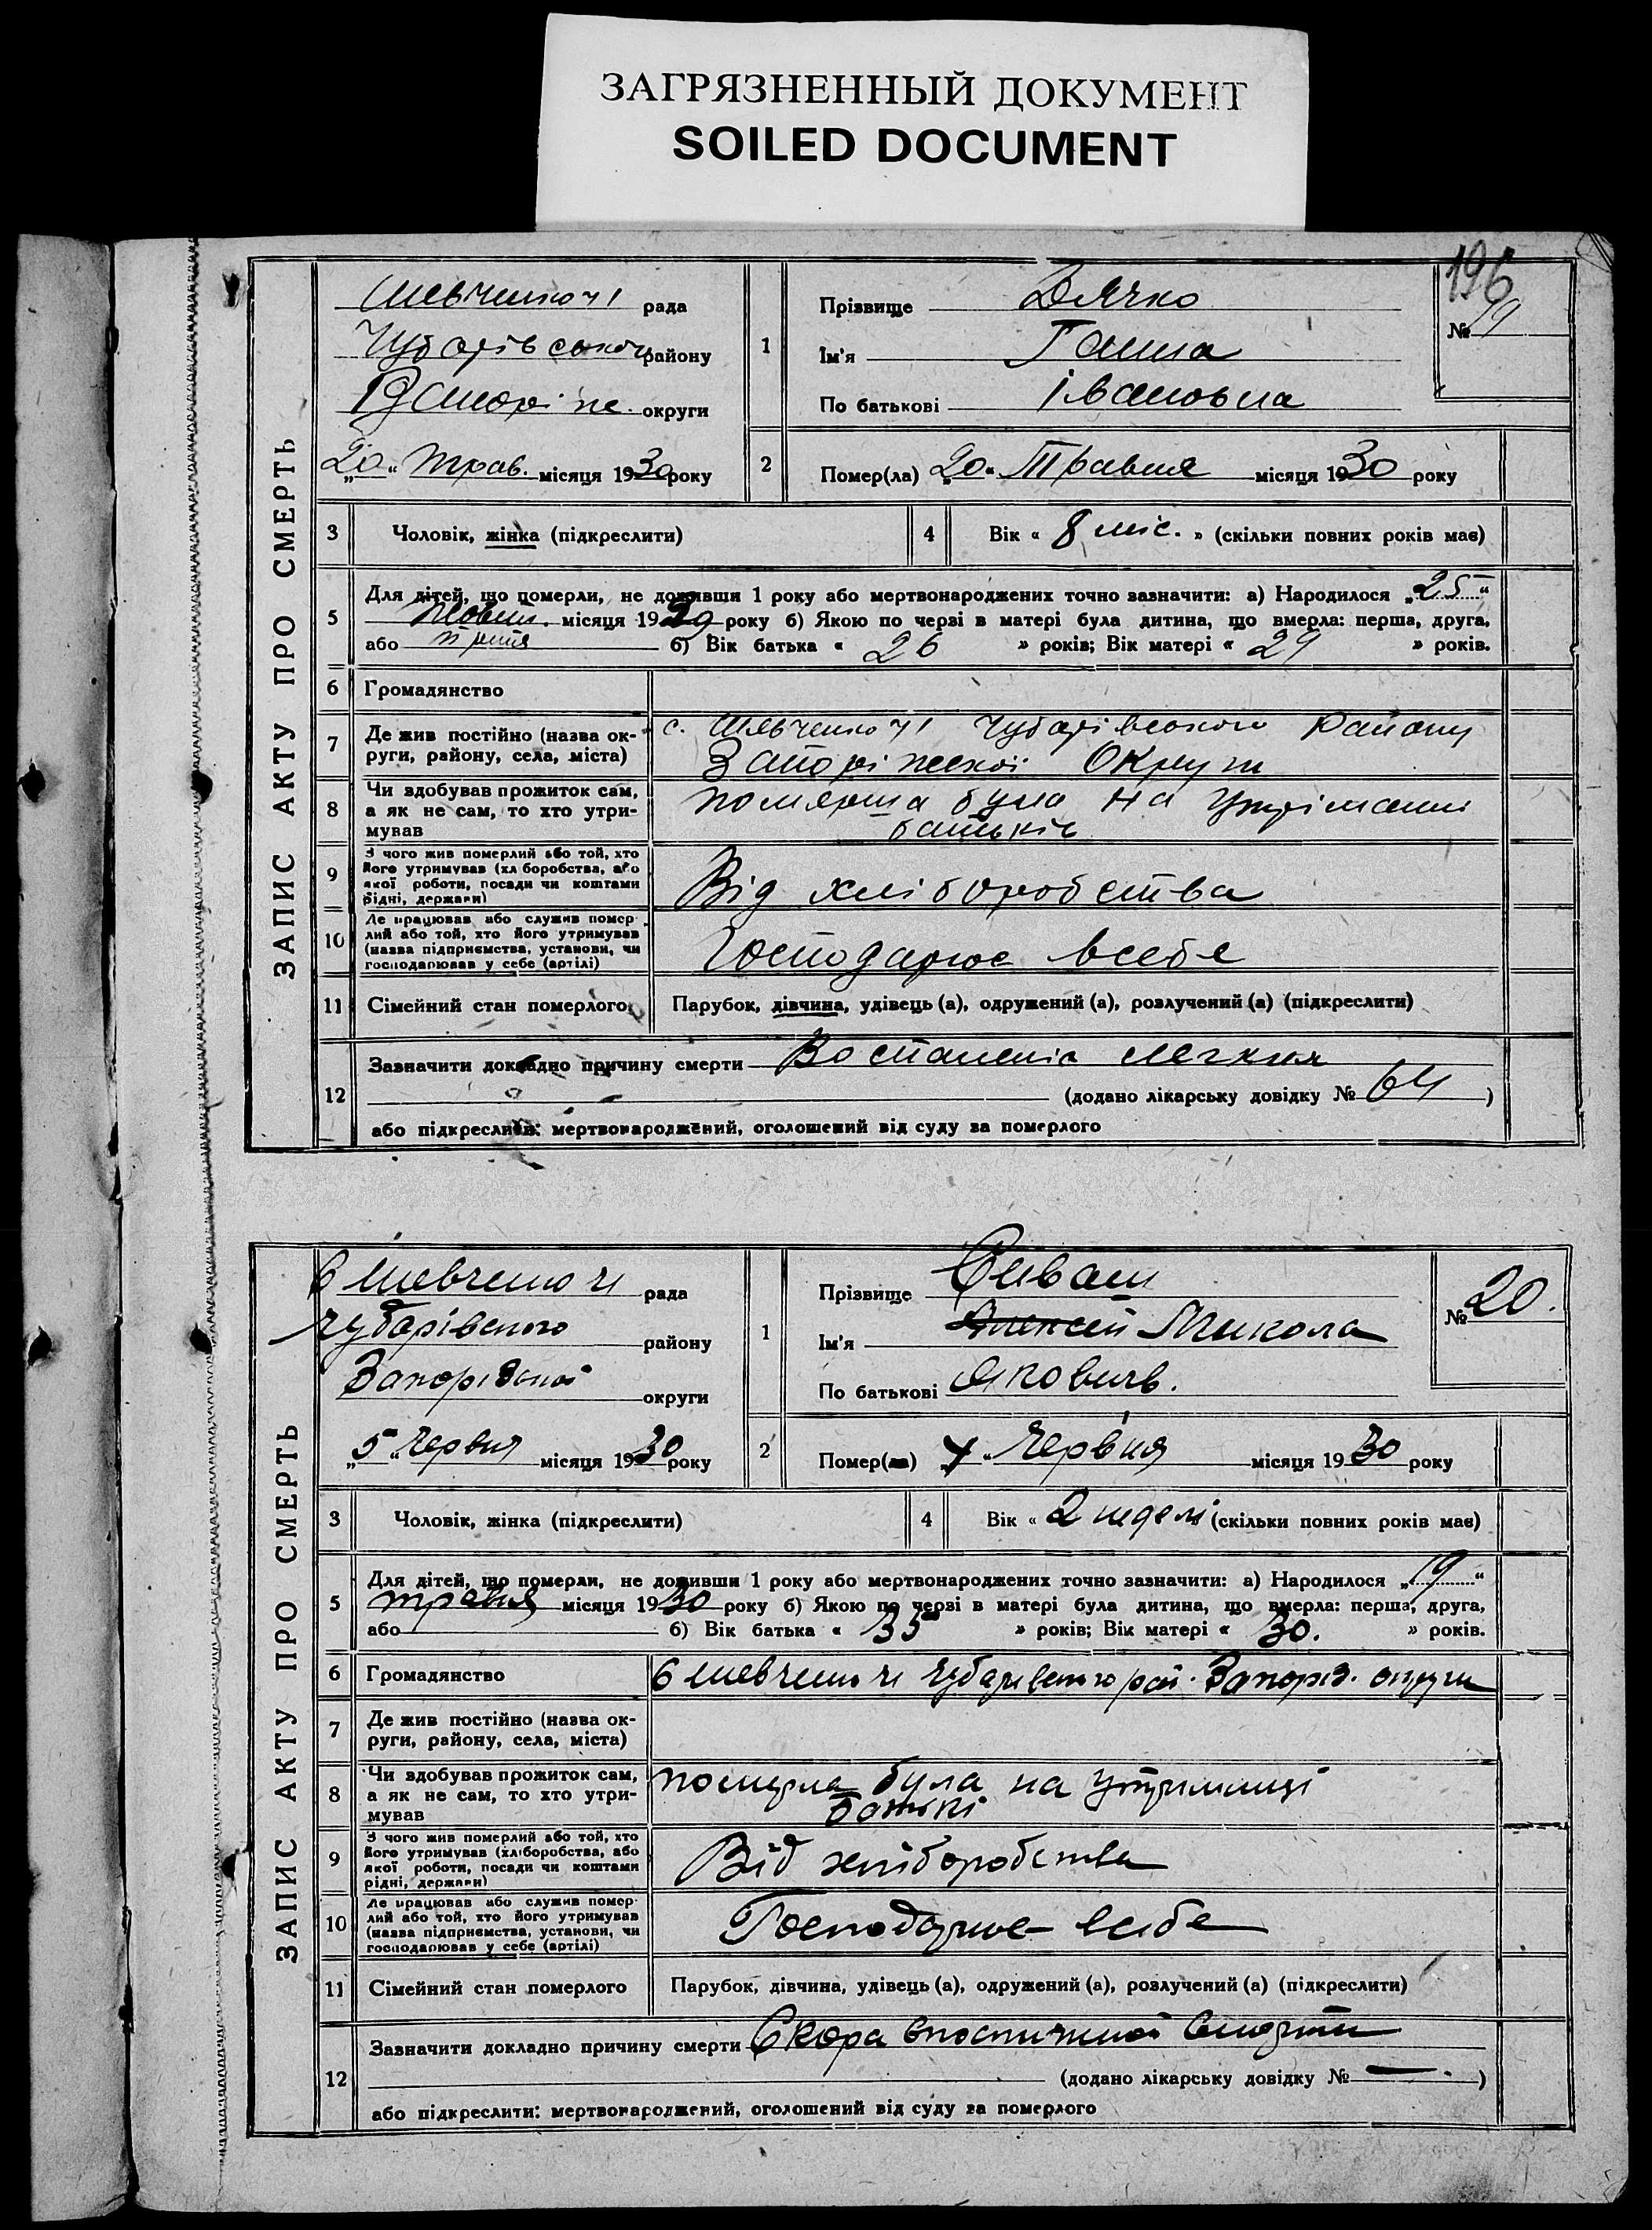 ЗАГРЯЗНЕННЫЙ ДОКУМЕНТ
SOILED DOCUMENT
196
ЗАПИС АКТУ ПРО СМЕРТЬ
рада
району
округи
„20“ Трав. місяця 1930 року
1
Прізвище Дячко
Ім'я Ганна
По батькові Івановна
№ 19
2
Помер(ла) „20“ Травня місяця 1930 року
3
Чоловік, жінка (підкреслити)
4
Вік « 8 міс. » (скільки повних років має)
5
Для дітей, що померли, не доживши 1 року або мертвонароджених точно зазначити: а) Народилося „25“
Жовтн. місяця 1929 року б) Якою по черзі в матері була дитина, що вмерла: перша, друга,
або третя б) Вік батька « 26 » років; Вік матері « 29 » років.
6
Громадянство
7
Де жив постійно (назва ок-
руги, району, села, міста)
с. Чубарівського Району
Запоріжської Округи
8
Чи здобував прожиток сам,
а як не сам, то хто утри-
мував
була на
батьків
9
З чого жив померлий або той, хто
його утримував (хліборобства, або
якої роботи, посади чи коштами
рідні, держави)
Від хліборобства
10
Де працював або служив помер-
лий або той, хто його утримував
(назва підприємства, установи, чи
господарював у себе (артілі)
Господарює всебе
11
Сімейний стан померлого
Парубок, дівчина, удівець (а), одружений (а), розлучений (а) (підкреслити)
12
Зазначити докладно причину смерти
(додано лікарську довідку № 64 )
або підкреслити: мертвонароджений, оголошений від суду за померлого
ЗАПИС АКТУ ПРО СМЕРТЬ
рада
Чубарівского району
округи
„5“ Червня місяця 1930 року
1
Прізвище Сиваш
Ім'я Алексей Микола
По батькові Яковичь.
№ 20.
2
Помер(ла) Червня місяця 1930 року
3
Чоловік, жінка (підкреслити)
4
Вік « 2 неделі (скільки повних років має)
5
Для дітей, що померли, не доживши 1 року або мертвонароджених точно зазначити: а) Народилося „19“
травня місяця 1930 року б) Якою по черзі в матері була дитина, що вмерла: перша, друга,
або б) Вік батька « 35 » років; Вік матері « 30. » років.
6
Громадянство
рай. Запоріз. округи
7
Де жив постійно (назва ок-
руги, району, села, міста)
8
Чи здобував прожиток сам,
а як не сам, то хто утри-
мував
була на
9
З чого жив померлий або той, хто
його утримував (хліборобства, або
якої роботи, посади чи коштами
рідні, держави)
Від хліборобства
10
Де працював або служив помер-
лий або той, хто його утримував
(назва підприємства, установи, чи
господарював у себе (артілі)
Господарює всебе
11
Сімейний стан померлого
Парубок, дівчина, удівець (а), одружений (а), розлучений (а) (підкреслити)
12
Зазначити докладно причину смерти Скора
(додано лікарську довідку № — )
або підкреслити: мертвонароджений, оголошений від суду за померлого